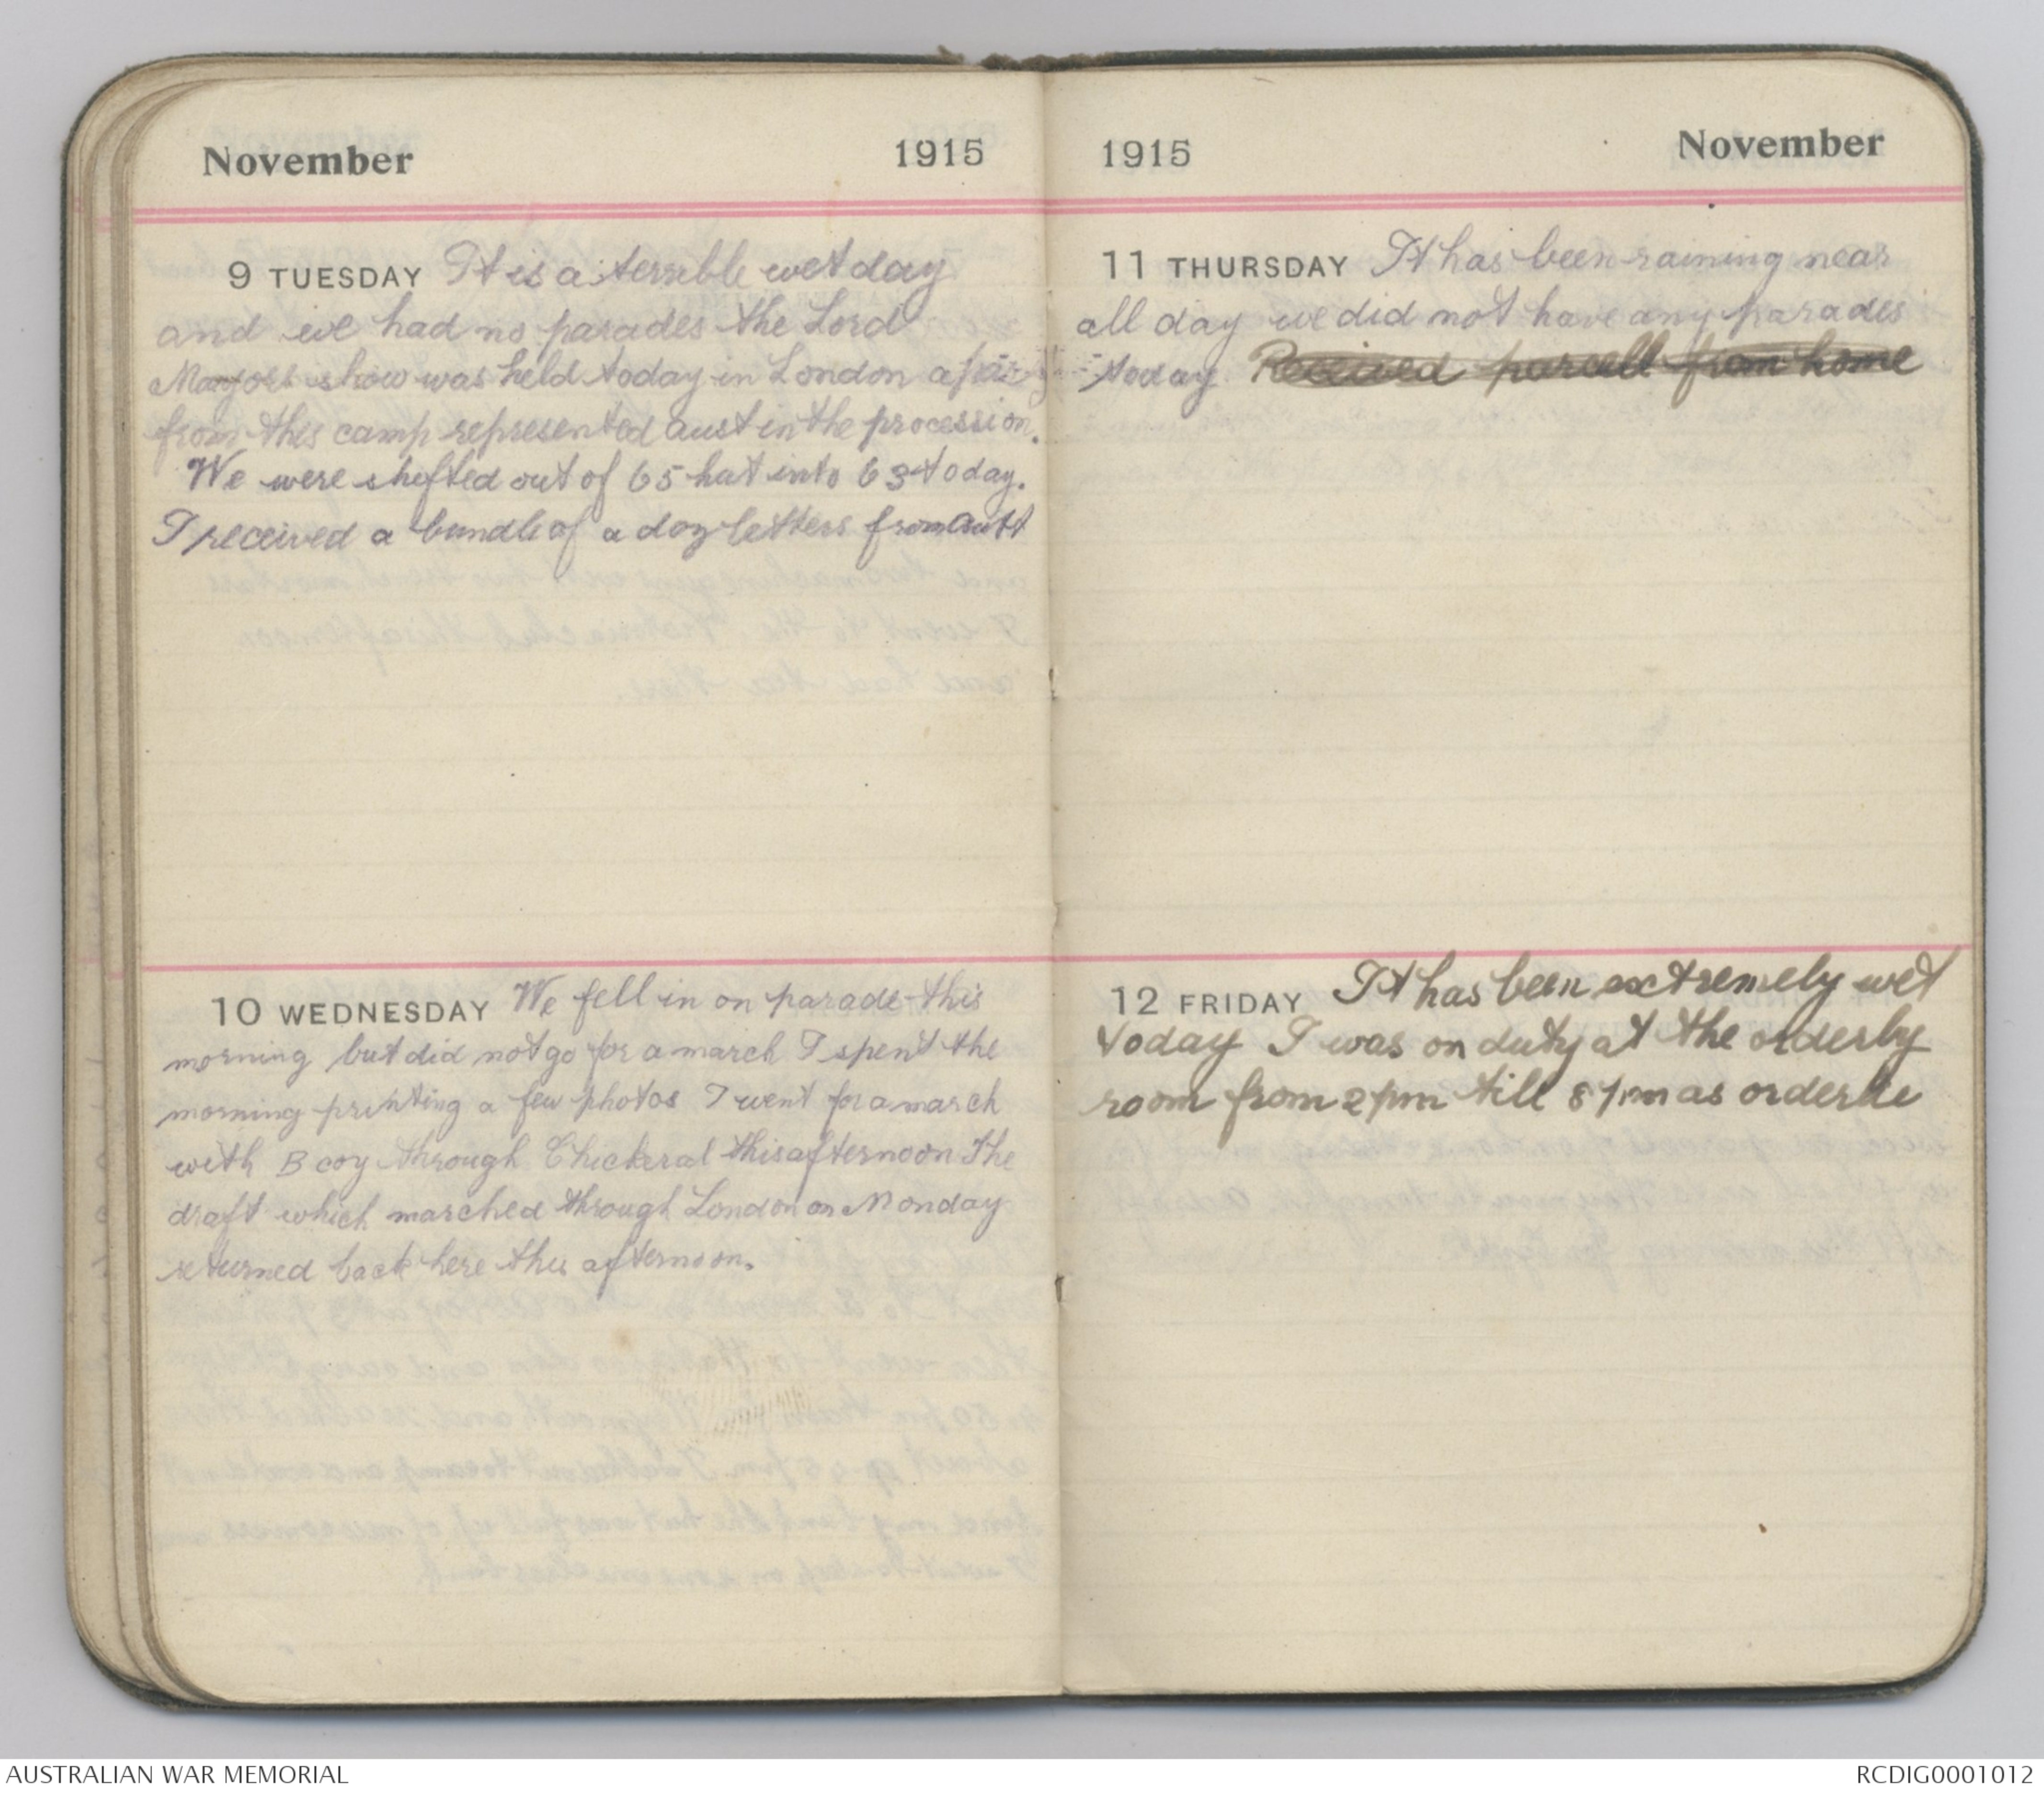 November 1915
9 TUESDAY It is a terrible wet day
and we had no parades the Lord
Mayors show was held today in London a
from this camp represented Aust in the procession.
We were shifted out of 65 hut into 63 today.
I received a bundle of a doz letters from Aust
10 WEDNESDAY We fell in on parade this
morning but did not go for a march I spent the
morning printing a few photos I went for a march
with B coy through Chickeral this afternoon The
draft which marched through London on Monday
returned back here this afternoon.
1915 November
11 THURSDAY It has been raining near
all day we did not have any parades
today Received parcell from home
12 FRIDAY It has been extremely wet
today I was on duty at the orderly
room from 2 pm till 8 pm as orderlie
AUSTRALIAN WAR MEMORIAL
RCDIG0001012